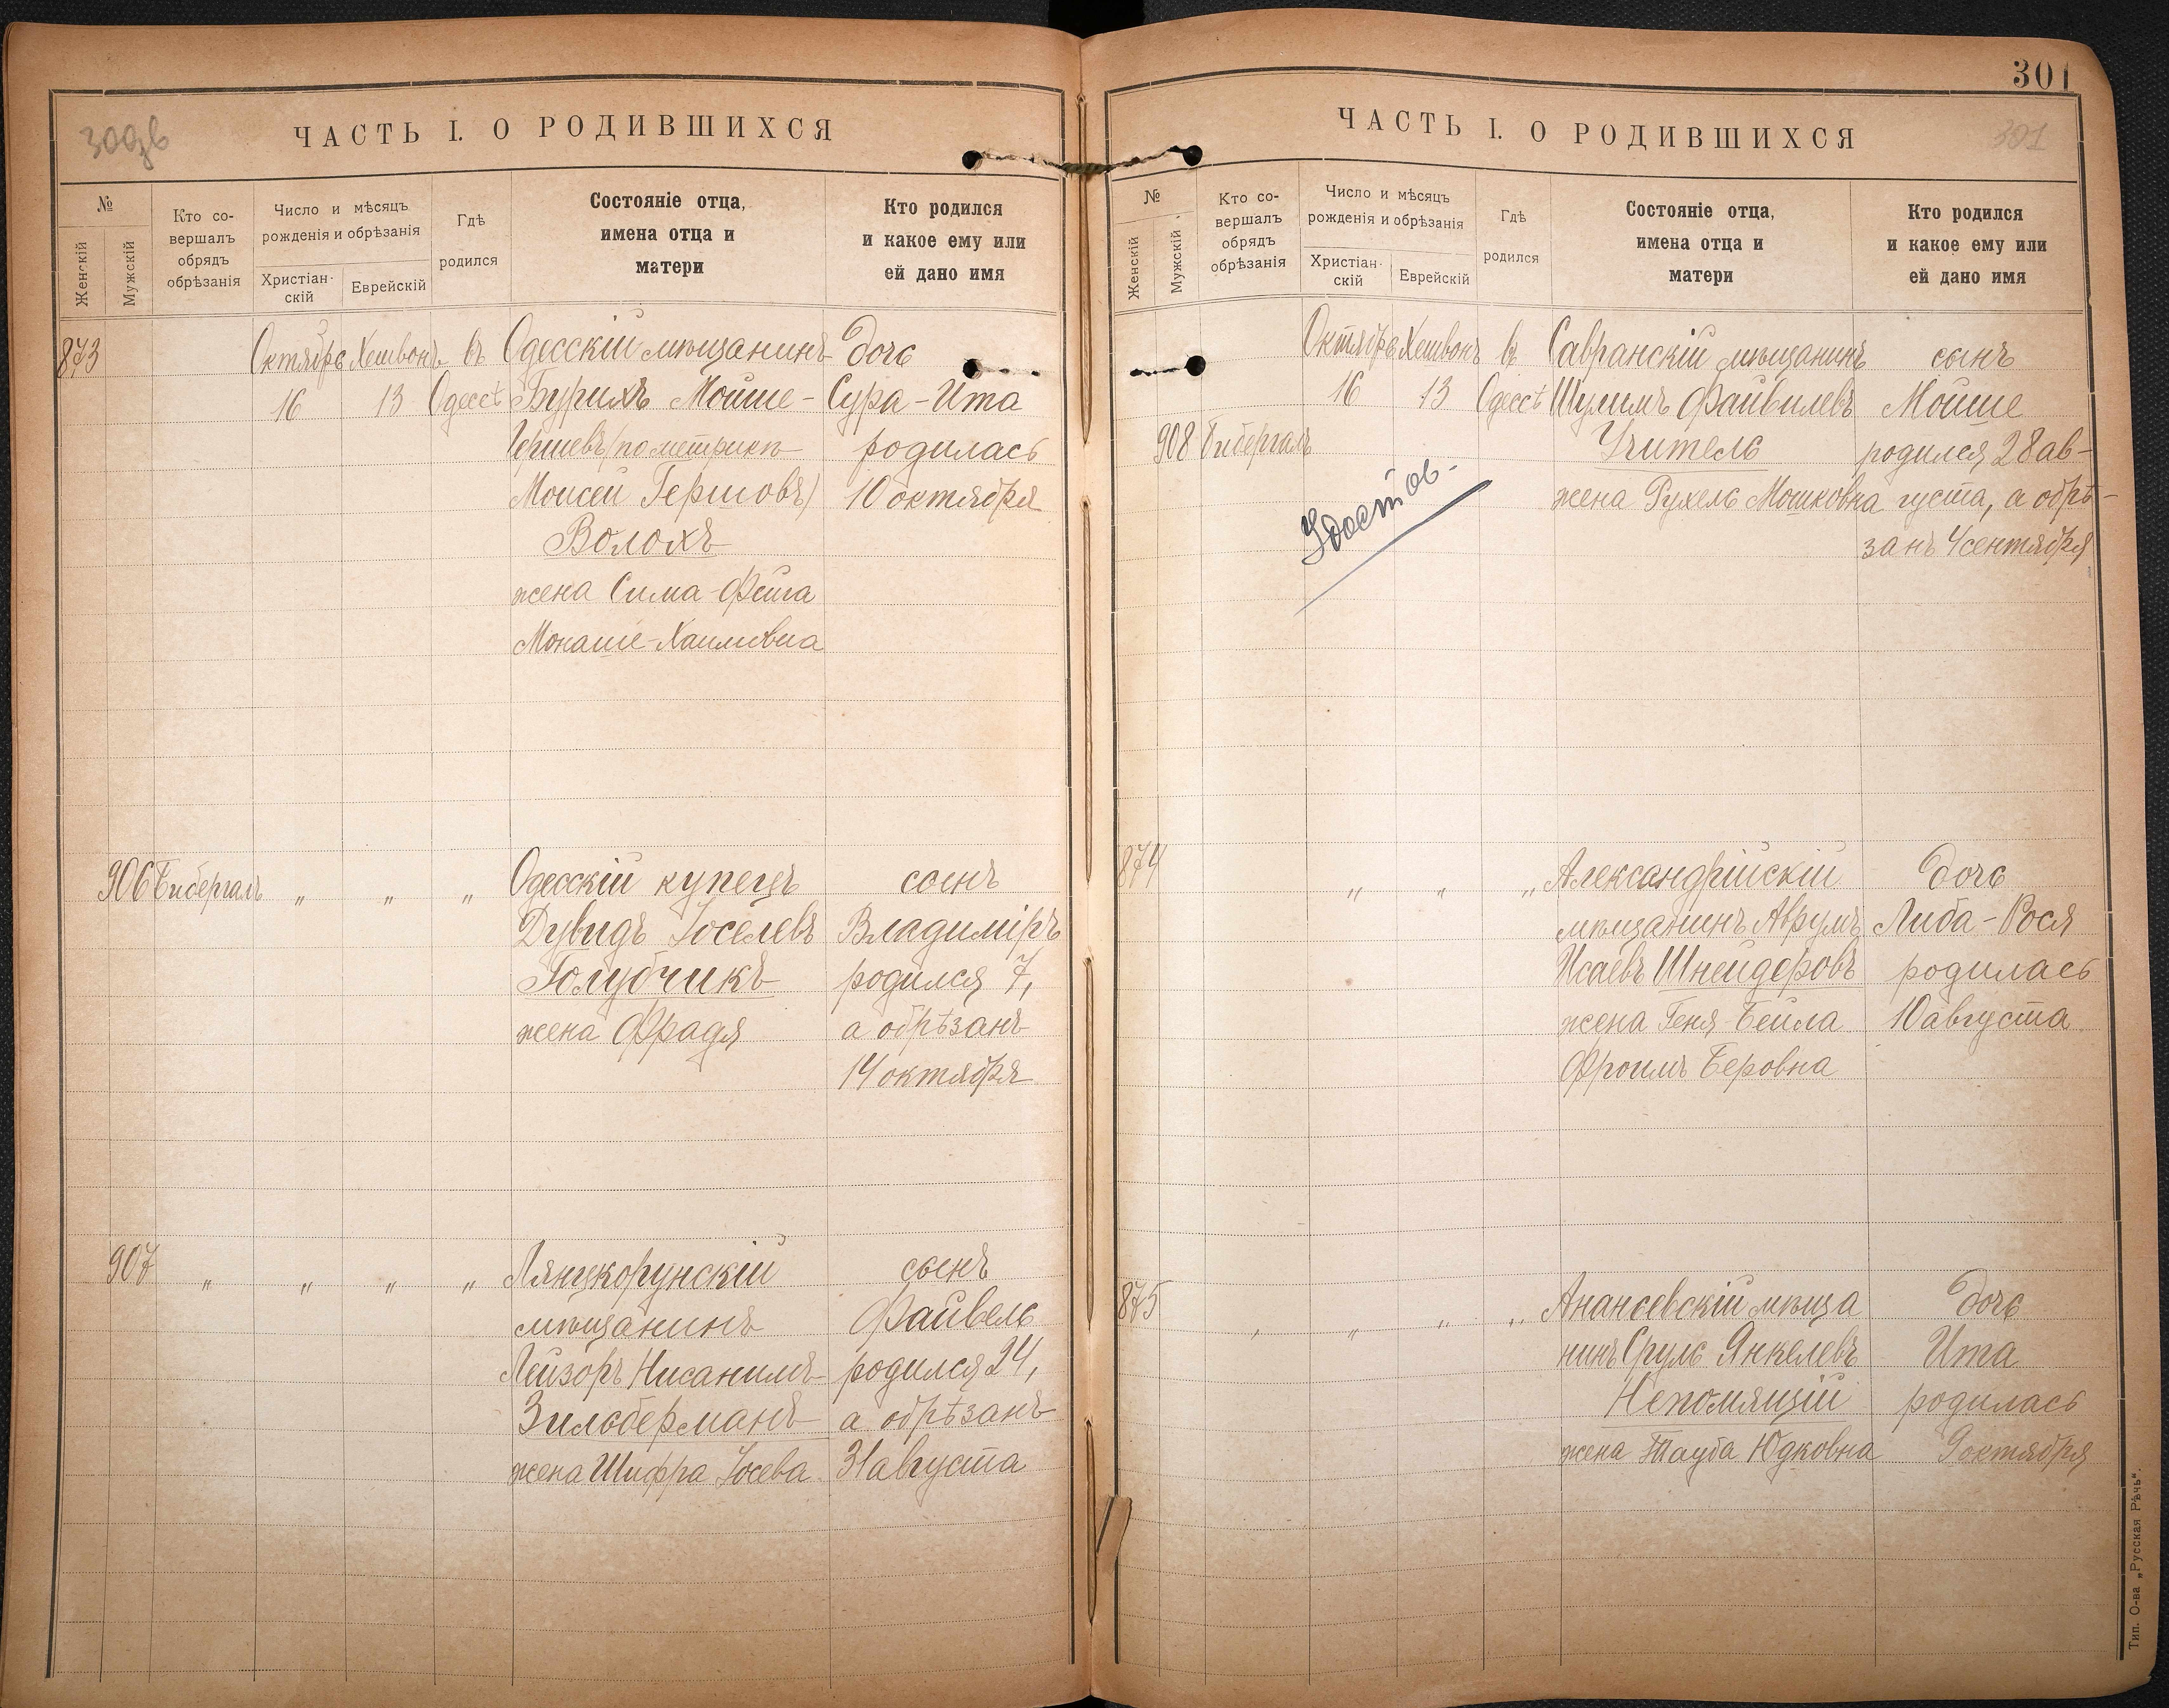 ЧАСТЬ I. О РОДИВШИХСЯ
№
Женскій
Мужскій
Кто со-
вершалъ
обрядъ
обрѣзанія
Число и мѣсяцъ
рожденія и обрѣзанія
Христіан-
скій
Еврейскій
Гдѣ
родился
Состояніе отца,
имена отца и
матери
Кто родился
и какое ему или
ей дано имя
873 Октябрь Хешвонъ въ Одесскій мѣщанинъ дочь
16 13 Одессѣ Бурихъ Мойше- Сура-Ита
Гершевъ (по метрикѣ родилась
Моисей Гершовъ) 10 октября
Волохъ
жена Сима-Фейга
Монаше-Хаимовна
906 Бибергалъ " " " Одесскій купецъ сынъ
Дувидъ Іоселевъ Владиміръ
Голубчикъ родился 7,
жена Фрадя а обрѣзанъ
14 октября
907 " " " " Лянцкорунскій сынъ
мѣщанинъ Файвель
Лейзоръ Нисанимъ родился 24,
Зильберманъ а обрѣзанъ
жена Шифра Іосева 31 августа
301
ЧАСТЬ I. О РОДИВШИХСЯ
301
№
Женскій
Мужскій
Кто со-
вершалъ
обрядъ
обрѣзанія
Число и мѣсяцъ
рожденія и обрѣзанія
Христіан-
скій
Еврейскій
Гдѣ
родился
Состояніе отца,
имена отца и
матери
Кто родился
и какое ему или
ей дано имя
Октябрь Хешвонъ въ Савранскій мѣщанинъ сынъ
16 13 Одессѣ Шулимъ Файвилевъ Мойше
908 Бибергалъ Учитель родился 28 ав-
Удостов- жена Рухель Мошковна густа, а обрѣ-
занъ 4 сентября
874 " " " Александрійскій дочь
мѣщанинъ Аврумъ Либа-Рося
Исаевъ Шнейдеровъ родилась
жена Геня-Бейла 10 августа
Фроимъ Беровна
875 " " " " Ананьевскій мѣща дочь
нинъ Сруль Янкелевъ Ита
Непомящій родилась
жена Тауба Юдковна 9 октября
Тип. О-ва „Русская Рѣчь“.